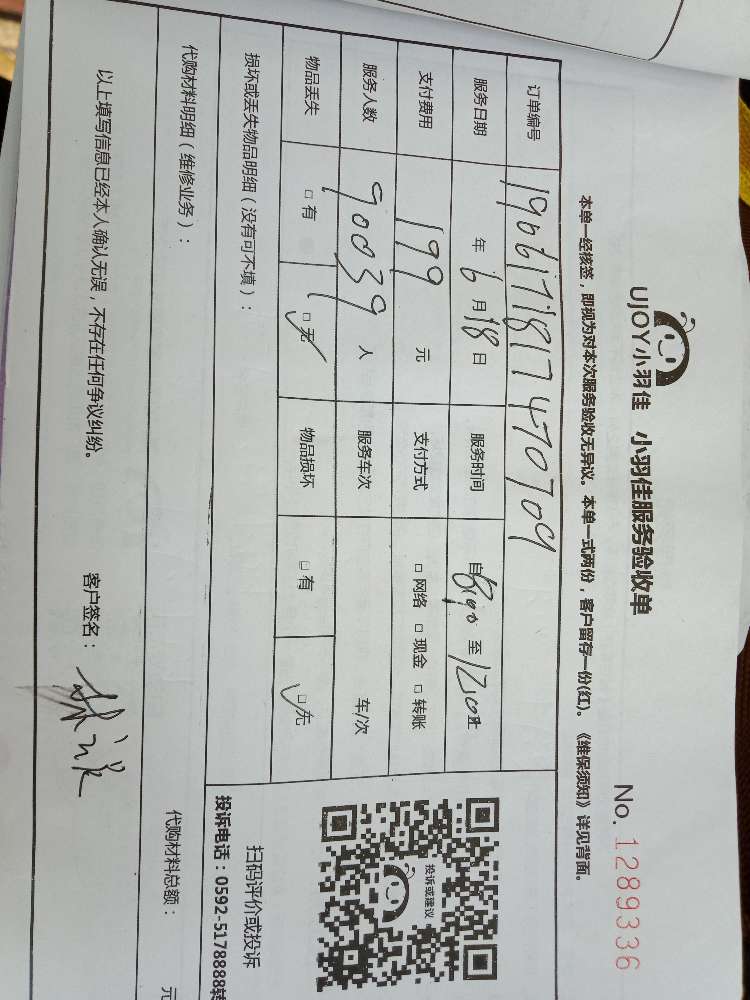 UJOY小羽佳 小羽佳服务验收单
No. 1289336
本单一经核签，即视为对本次服务验收无异议。本单一式两份，客户留存一份(红)。《维保须知》详见背面。
订单编号 190617181747070
服务日期 年 6 月 18 日 服务时间 自 至
支付费用 199 元 支付方式 □ 网络 □ 现金 □ 转账
服务人数 90039 人 服务车次 车/次
物品丢失 □ 有 □ 无 物品损坏 □ 有 □ 无
投诉或建议
扫码评价或投诉
投诉电话：0592-5178888转
损坏或丢失物品明细（没有可不填）：
代购材料明细（维修业务）： 代购材料总额： 元
以上填写信息已经本人确认无误，不存在任何争议纠纷。 客户签名：